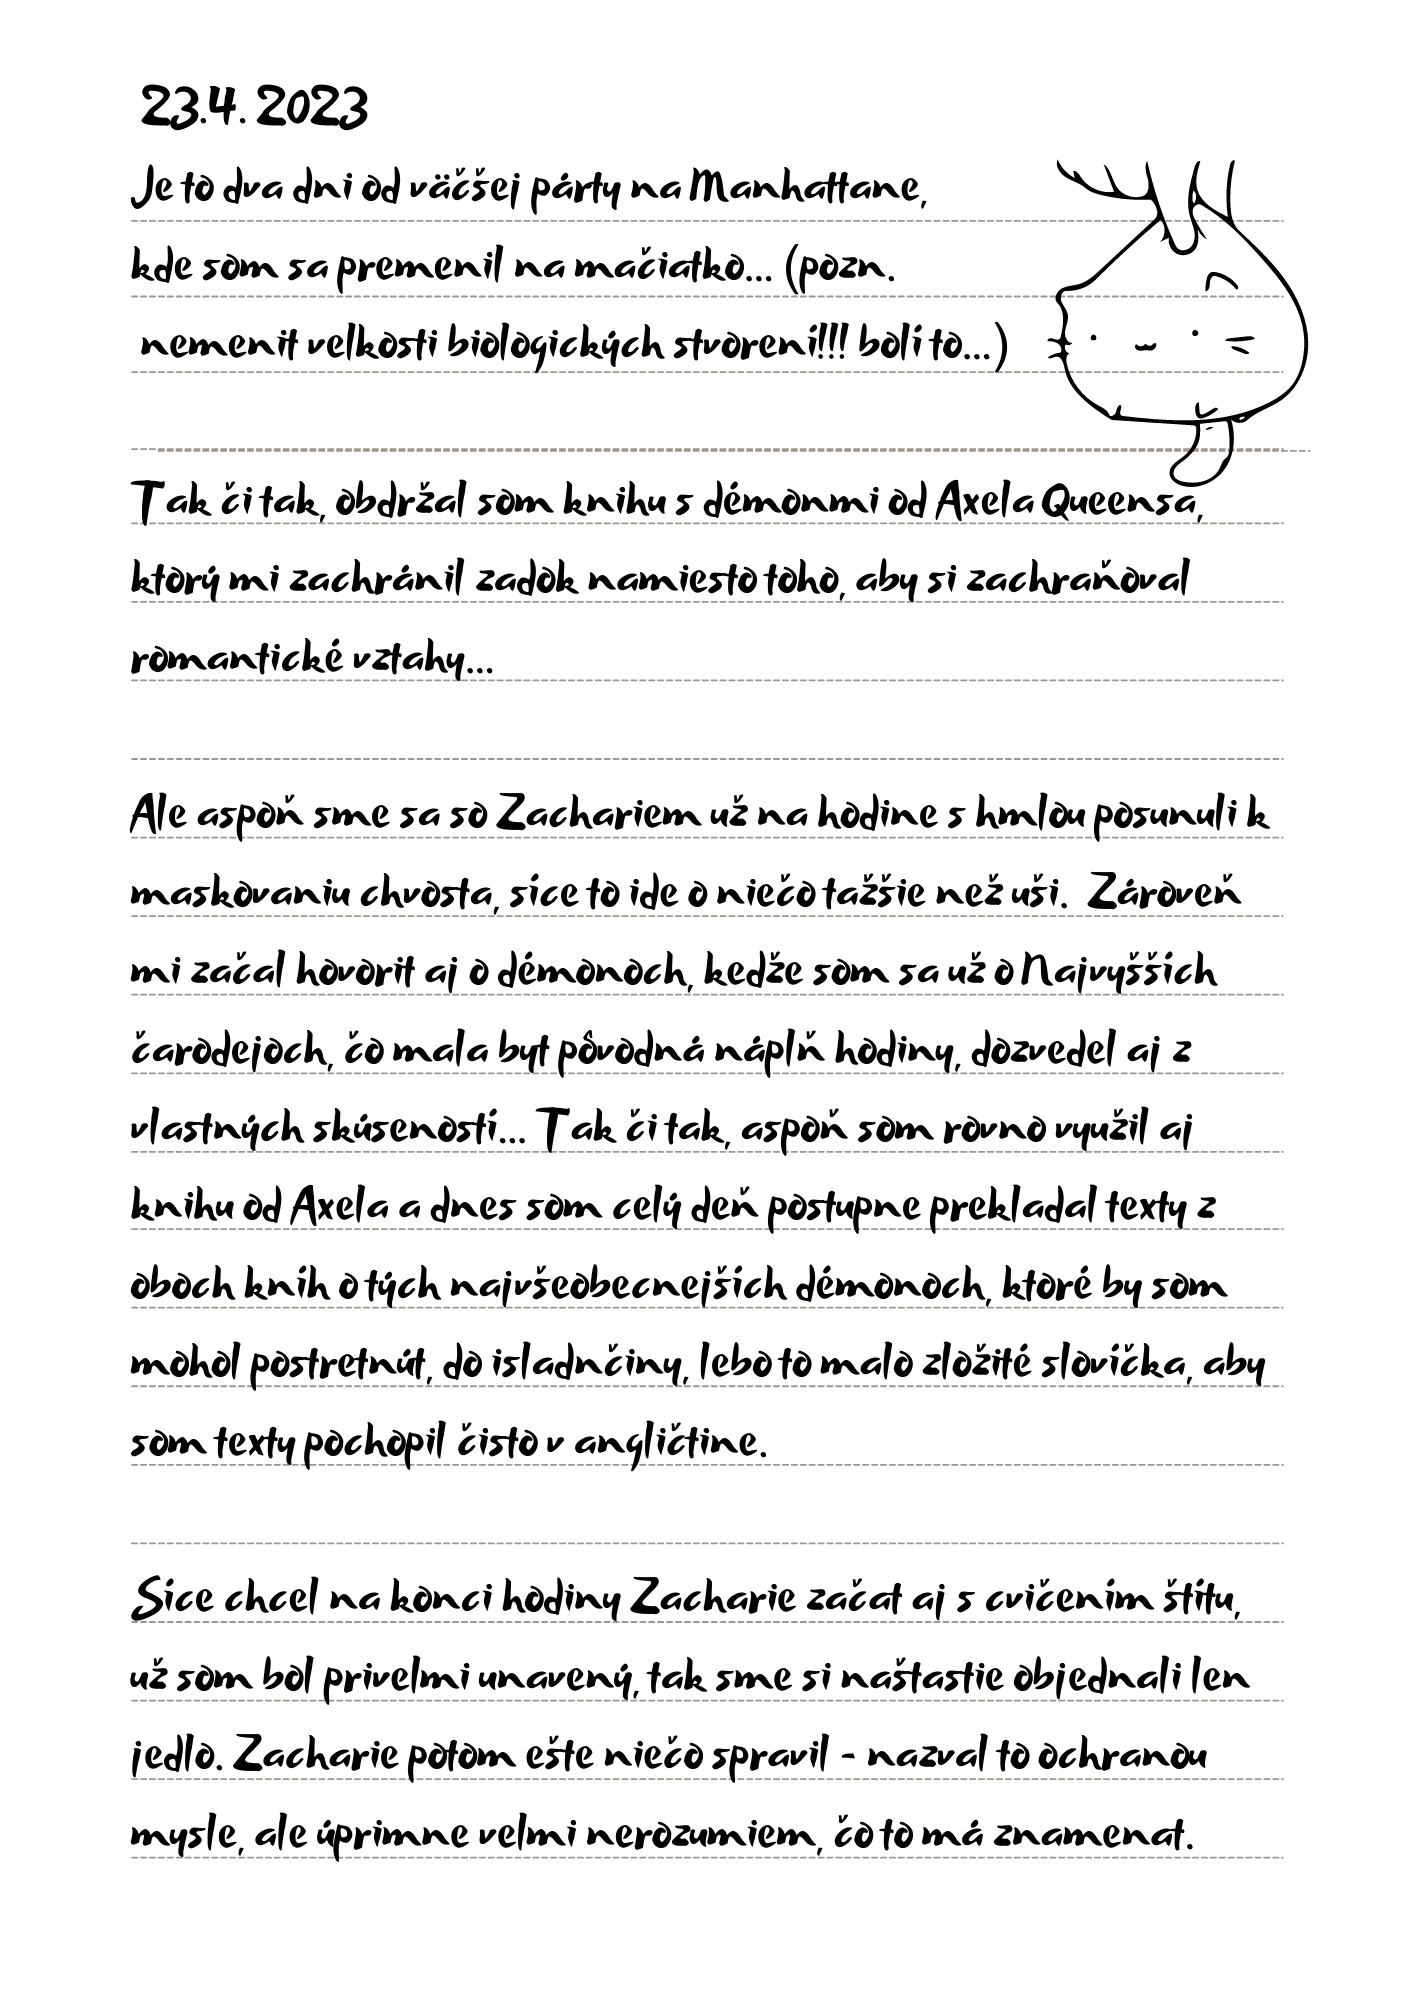 23.4. 2023
Je to dva dni od väčšej párty na Manhattane,
kde som sa premenil na mačiatko... (pozn.
nemenit velkosti biologických stvorení!!! bolí to...)
Tak či tak, obdržal som knihu s démonmi od Axela Queensa,
ktorý mi zachránil zadok namiesto toho, aby si zachraňoval
romantické vztahy...
Ale aspoň sme sa so Zachariem už na hodine s hmlou posunuli k
maskovaniu chvosta, síce to ide o niečo tažšie než uši. Zároveň
mi začal hovorit aj o démonoch, kedže som sa už o Najvyšších
čarodejoch, čo mala byt pôvodná náplň hodiny, dozvedel aj z
vlastných skúseností... Tak či tak, aspoň som rovno využil aj
knihu od Axela a dnes som celý deň postupne prekladal texty z
oboch kníh o tých najvšeobecnejších démonoch, ktoré by som
mohol postretnút, do isladnčiny, lebo to malo zložité slovíčka, aby
som texty pochopil čisto v angličtine.
Síce chcel na konci hodiny Zacharie začat aj s cvičením štítu,
už som bol privelmi unavený, tak sme si naštastie objednali len
jedlo. Zacharie potom ešte niečo spravil - nazval to ochranou
mysle, ale úprimne velmi nerozumiem, čo to má znamenat.